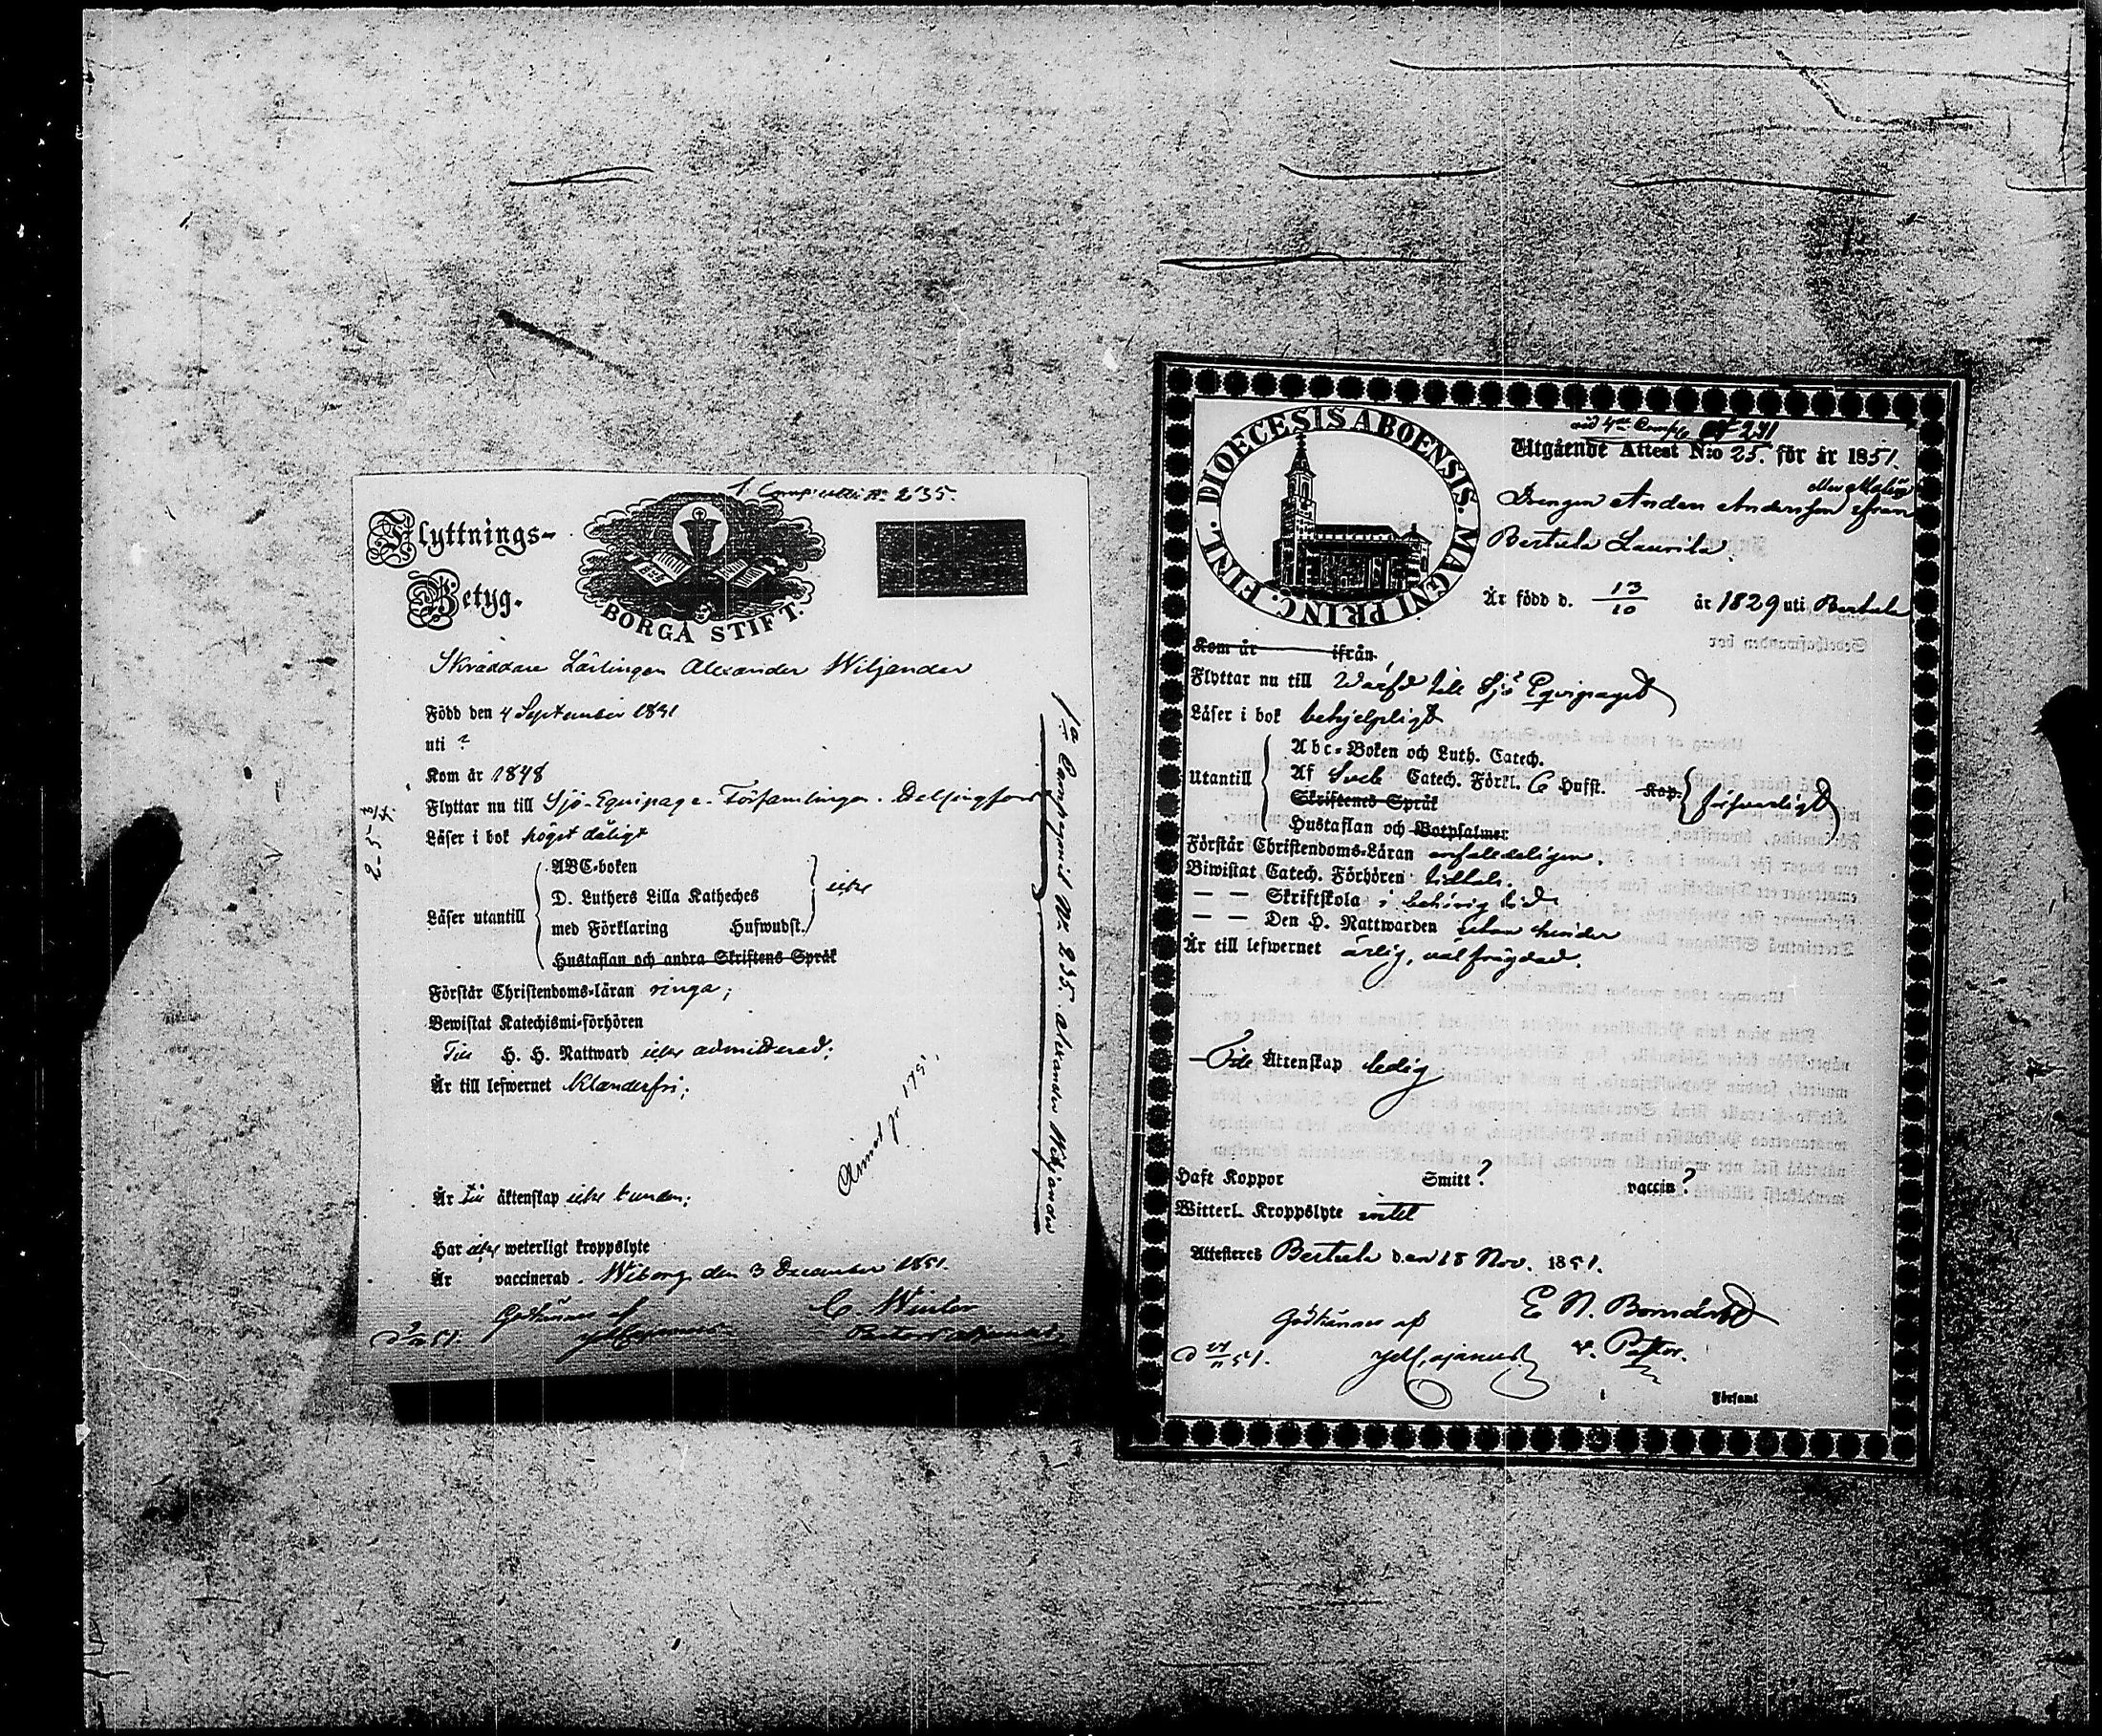 1 Compagniet No 235.
Flyttnings-
Betyg.
BORGÅ STIFT.
Skräddare Lärlingen Alexander Wiljander
Född den 4 September 1831
uti ?
Kom år 1848
Flyttar nu till Sjö-Equipage-Församlingen. Helsingfors
Läser i bok högst dåligt
Läser utantill
ABC-boken
D. Luthers Lilla Katheches
med Förklaring Hufwudst.
icke
Hustaflan och andra Skriftens Språk
Förstår Christendoms-läran ringa;
Bewistat Katechismi-förhören
Till H. H. Nattward icke admitterad;
Är till lefwernet klanderfri;
Är till äktenskap icke bunden;
Har icke weterligt kroppslyte
Är vaccinerad. Wiborg den 3 December 1851.
C. Winter
Godkännes af
1a Compagniet No 235. Alexander Wiljander
DIOECESIS ABOENSIS. MAGNI PRINC. FINL.
vid 4de Comp. No 241
Utgående Attest N:o 25. för år 1851.
Drengen Anders Andersson ifran
Bertula Laurila.
Är född d. 13/10 år 1829 uti Bertula
Kom år ifrån
Flyttar nu till Wärfd till Sjö Equipaget
Läser i bok behjelpligt
Utantill
Abc-Boken och Luth. Catech.
Af Sveb. Catech. Förkl. 6 Hufst. Kap.
Skriftenes Språk
försvarligt
Hustaflan och Botpsalmer
Förstår Christendoms-Läran enfaldeligen.
Biwistat Catech. Förhören tidtals.
— — Skriftskola i behörig tid
— — Den H. Nattwarden utan hinder
Är till lefwernet ärlig, välfrägdad.
Till Äktenskap ledig
Haft Koppor Smitt? vaccin?
Witterl. Kroppslyte intet
Attesteres Bertula den 18 Nov. 1851.
E N. Borndahl
v. Pastor.
Godkännes af
i Församl